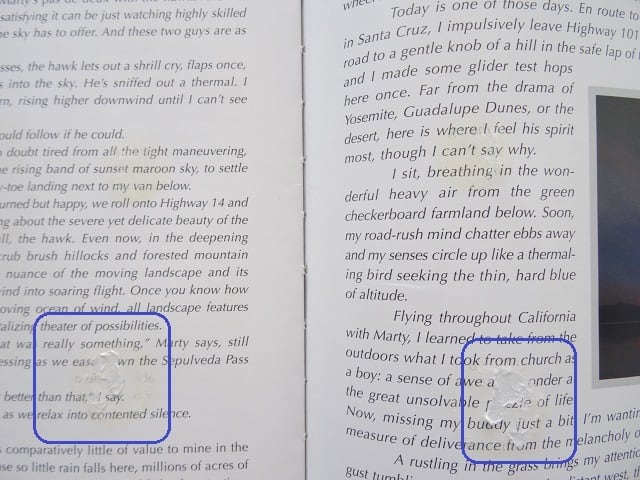 Marty's pas de deux with the
satisfying it can be just watching highly skilled
e sky has to offer. And these two guys are
sses, the hawk lets out a shrill cry, flaps once,
s into the sky. He's sniffed out a thermal. I
rn, rising higher downwind until I can't see
ould follow if he could.
o doubt tired from all the tight maneuvering,
e rising band of sunset maroon sky, to settle
y-toe landing next to my van below.
urned but happy, we roll onto Highway 14 and
ng about the severe yet delicate beauty of the
ll, the hawk. Even now, in the deepening
crub brush hillocks and forested mountain
nuance of the moving landscape and its
ind into soaring flight. Once you know how
oving ocean of wind, all landscape features
talizing theater of possibilities.
at was really something," Marty says, still
essing as we eas down the Sepulveda Pass
better than that," I say.
as we relax into contented silence.
s comparatively little of value to mine in the
use so little rain falls here, millions of acres of
Today is one of those days. En route to
in Santa Cruz, I impulsively leave Highway 101
road to a gentle knob of a hill in the safe lap of
and I made some glider test hops
here once. Far from the drama of
Yosemite, Guadalupe Dunes, or the
desert, here is where I feel his spirit
most, though I can't say why.
I sit, breathing in the won-
derful heavy air from the green
checkerboard farmland below. Soon,
my road-rush mind chatter ebbs away
and my senses circle up like a thermal-
ing bird seeking the thin, hard blue
of altitude.
Flying throughout California
with Marty, I learned to take from the
outdoors what I took from church as
a boy: a sense of awe a onder a
the great unsolvable p zle of life
Now, missing my buddy just a bit, I'm wantin
measure of deliverance from the melancholy o
A rustling in the grass brings my attentio
gust tumbli distant west, th